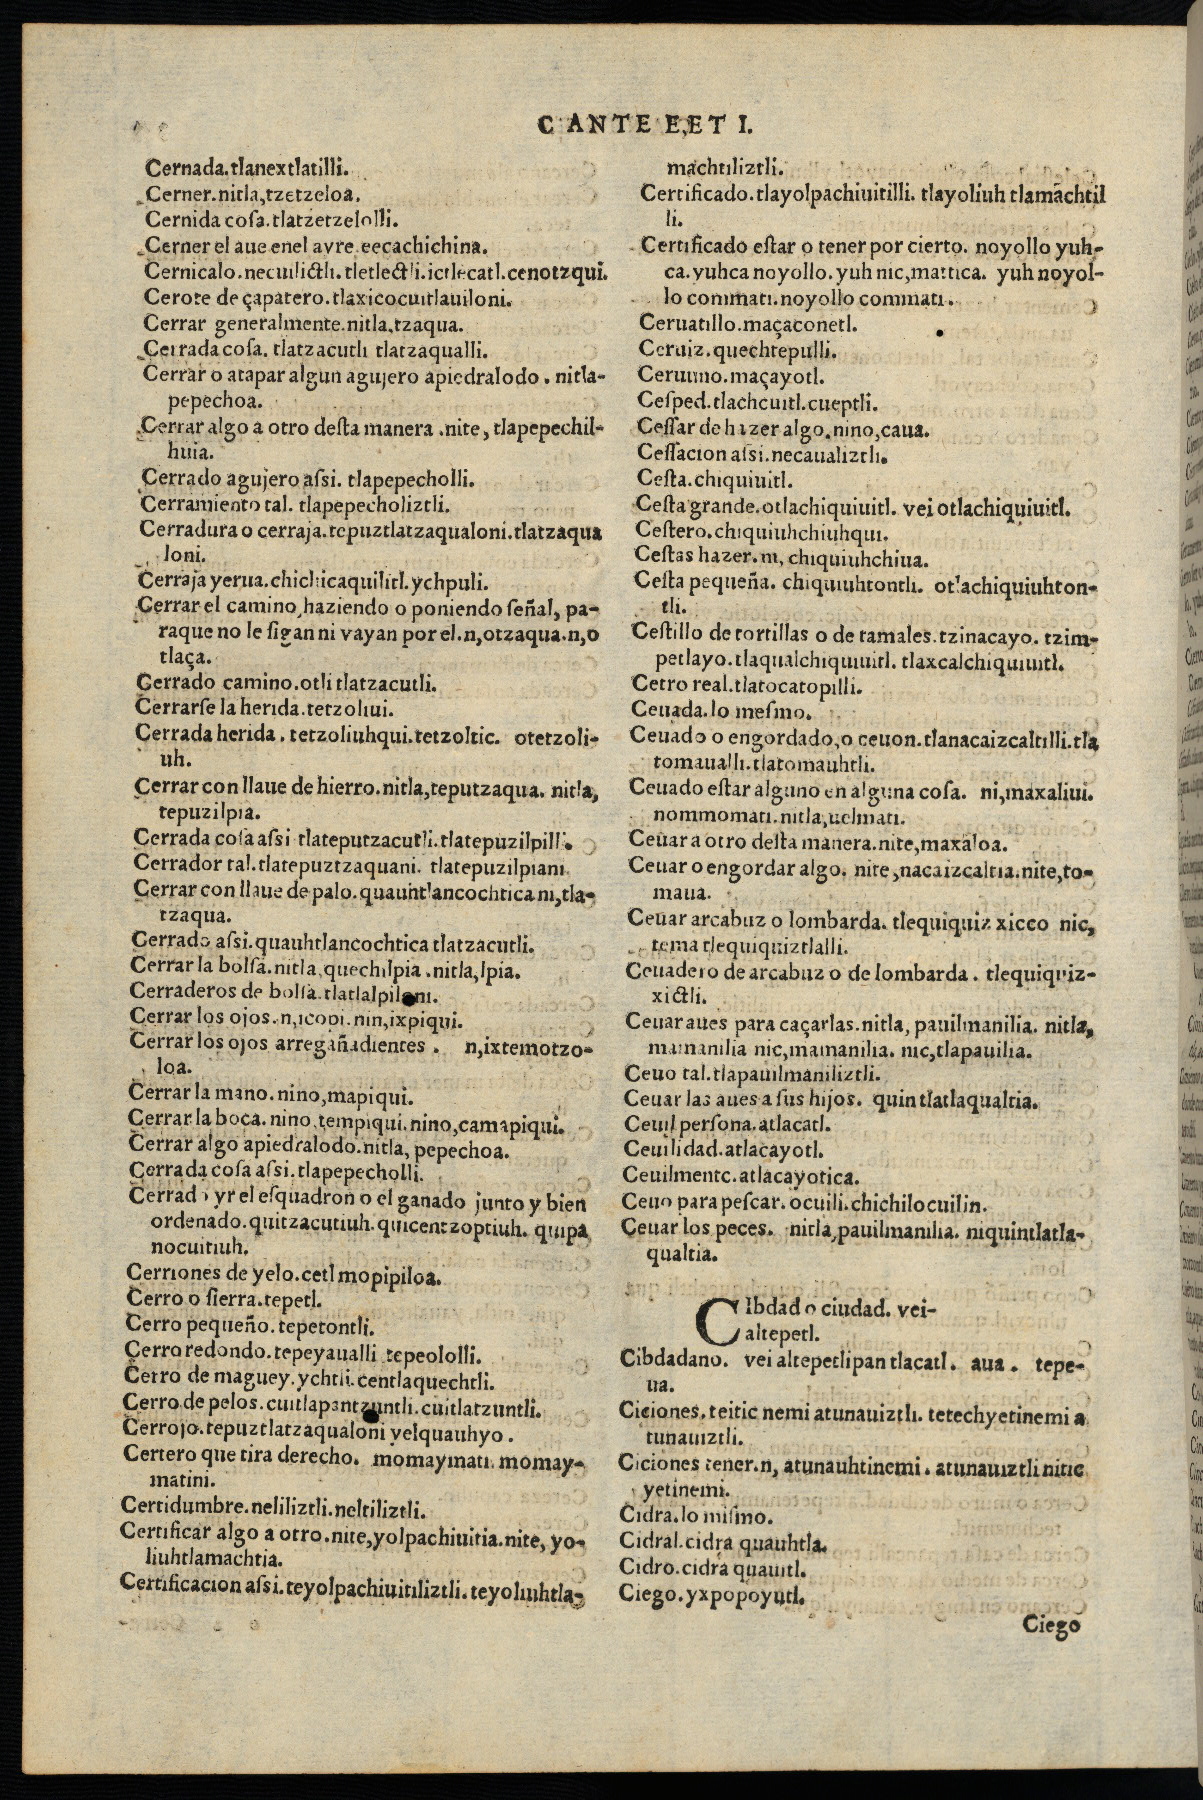 C ANTE E,ET I.
Cernada.tlanextlatilli.
Cerner.nitla,tzetzeloa.
Cernida cosa.tlatzetzelolli.
Cerner el aue enel ayre.eecachichina.
Cernicalo.necuilictli.tletlectli.ictlecatl.cenotzqui.
Cerote de çapatero.tlaxicocuitlauiloni.
Cerrar generalmente.nitla,tzaqua.
Cerrada cosa. tlatzacutli tlatzaqualli.
Cerrar o atapar algun agujero apiedralodo. nitla-
pepechoa.
Cerrar algo a otro desta manera .nite, tlapepechil-
huia.
Cerrado agujero assi. tlapepecholli.
Cerramiento tal. tlapepecholiztli.
Cerradura o cerraja.tepuztlatzaqualoni.tlatzaqua
loni.
Cerraja yerua.chichicaquilitl.ychpuli.
Cerrar el camino,haziendo o poniendo señal, pa-
raque no le sigan ni vayan por el.n,otzaqua.n,o
tlaça.
Cerrado camino.otli tlatzacutli.
Cerrarse la herida.tetzoliui.
Cerrada herida. tetzoliuhqui.tetzoltic. otetzoli-
uh.
Cerrar con llaue de hierro.nitla,teputzaqua. nitla,
tepuzilpia.
Cerrada cosa assi tlateputzacutli.tlatepuzilpilli.
Cerrador tal.tlatepuztzaquani. tlatepuzilpiani
Cerrar con llaue de palo.quauhtlancochtica ni,tla-
tzaqua.
Cerrado assi.quauhtlancochtica tlatzacutli.
Cerrar la bolsa.nitla,quechilpia.nitla,lpia.
Cerraderos de bolsa.tlatlalpiloni.
Cerrar los ojos.n,icopi.nin,ixpiqui.
Cerrar los ojos arregañadientes. n,ixtemotzo-
loa.
Cerrar la mano.nino,mapiqui.
Cerrar la boca.nino,tempiqui.nino,camapiqui.
Cerrar algo apiedralodo.nitla, pepechoa.
Cerrada cosa assi.tlapepecholli.
Cerrado yr el esquadron o el ganado junto y bien
ordenado.quitzacutiuh.quicentzoptiuh. quipa
nocuitiuh.
Cerriones de yelo.cetl mopipiloa.
Cerro o sierra.tepetl.
Cerro pequeño.tepetontli.
Cerro redondo.tepeyaualli tepeololli.
Cerro de maguey.ychtli.centlaquechtli.
Cerro de pelos.cuitlapantzuntli.cuitlatzuntli.
Cerrojo.tepuztlatzaqualoni yelquauhyo.
Certero que tira derecho. momaymati.momay-
matini.
Certidumbre.neliliztli.neltiliztli.
Certificar algo a otro.nite,yolpachiuitia.nite, yo-
liuhtlamachtia.
Certificacion assi.teyolpachiuitiliztli.teyoliuhtla-
machtiliztli.
Certificado.tlayolpachiuitilli. tlayoliuh tlamachtil
li.
Certificado estar o tener por cierto. noyollo yuh-
ca.yuhca noyollo.yuh nic,mattica. yuh noyol-
lo commati.noyollo commati.
Ceruatillo.maçaconetl.
Ceruiz.quechtepulli.
Ceruuno.maçayotl.
Cesped.tlachcuitl.cueptli.
Cessar de hazer algo.nino,caua.
Cessacion assi.necaualiztli.
Cesta.chiquiuitl.
Cesta grande.otlachiquiuitl. vei otlachiquiuitl.
Cestero.chiquiuhchiuhqui.
Cestas hazer.ni, chiquiuhchiua.
Cesta pequeña. chiquiuhtontli. otlachiquiuhton-
tli.
Cestillo de tortillas o de tamales.tzinacayo. tzim-
petlayo.tlaqualchiquiuitl. tlaxcalchiquiuitl.
Cetro real.tlatocatopilli.
Ceuada.lo mesmo.
Ceuado o engordado,o ceuon.tlanacaizcaltilli.tla
tomaualli.tlatomauhtli.
Ceuado estar alguno en alguna cosa. ni,maxaliui.
nommomati.nitla,uelmati.
Ceuar a otro desta manera.nite,maxaloa.
Ceuar o engordar algo. nite,nacaizcaltia.nite,to-
maua.
Ceuar arcabuz o lombarda. tlequiquiz xicco nic,
tema tlequiquiztlalli.
Ceuadero de arcabuz o de lombarda. tlequiquiz-
xictli.
Ceuar aues para caçarlas.nitla, pauilmanilia. nitla,
mamanilia nic,mamanilia. nic,tlapauilia.
Ceuo tal.tlapauilmaniliztli.
Ceuar las aues a sus hijos. quin tlatlaqualtia.
Ceuil persona.atlacatl.
Ceuilidad.atlacayotl.
Ceuilmente.atlacayotica.
Ceuo para pescar.ocuili.chichilocuilin.
Ceuar los peces. nitla,pauilmanilia. niquintlatla-
qualtia.
CIbdad o ciudad. vei-
altepetl.
Cibdadano. vei altepetlipan tlacatl. aua. tepe-
ua.
Ciciones.teitic nemi atunauiztli. tetechyetinemi a
tunauiztli.
Ciciones tener.n, atunauhtinemi. atunauiztli nitic
yetinemi.
Cidra.lo mismo.
Cidral.cidra quauhtla.
Cidro.cidra quauitl.
Ciego.yxpopoyutl.
Ciego